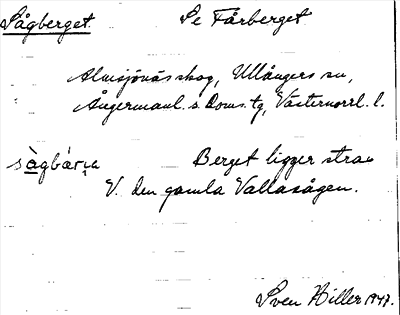 Sågberget Se Fårberget
Almsjönäs skog, Ullångers sn,
Ångermanl. s. Doms. tg, Västernorrl. l.
sàgbár̥i̯a Berget ligger strax
V. den gamla Vallasågen.
Sven Hiller 1947.